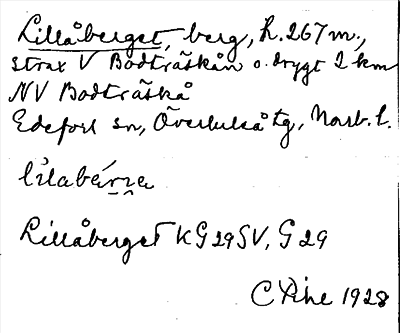 Lillåberget, berg, h. 267 m.,
strax V Bodträskån o. drygt 2 km
NV Bodträskå
Edefors sn, Överluleå tg, Norrb. l.
lilabær̂re
Lillåberget KG 29 SV, G 29
C Pihl 1928